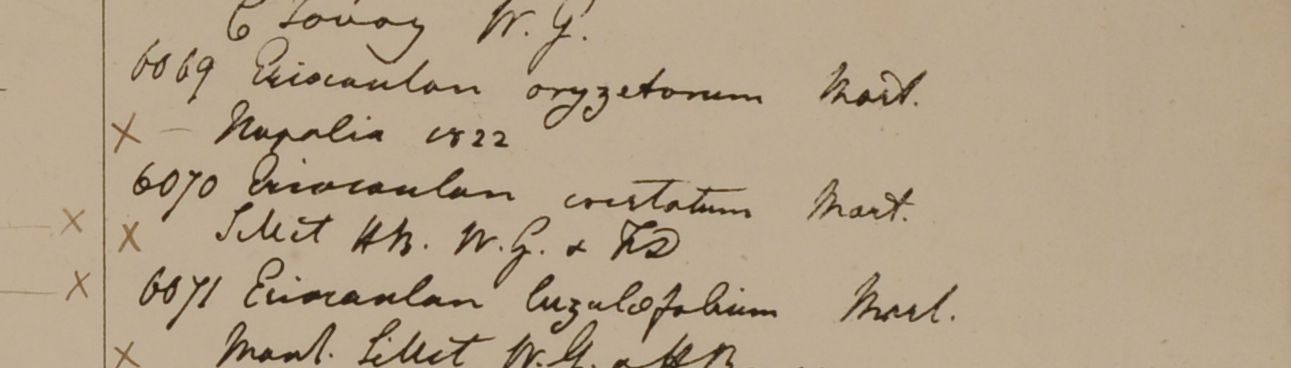 C Tavoy W. G.
6069 Eriocaulon oryzetorum Mart.
× – Napalia 1822
6070 Eriocaulon cristatum Mart.
× × Sillet HB. W. G. &
× 6071 Eriocaulon luzulæfolium Mart.
× Mont. Sillet W. G. & HB